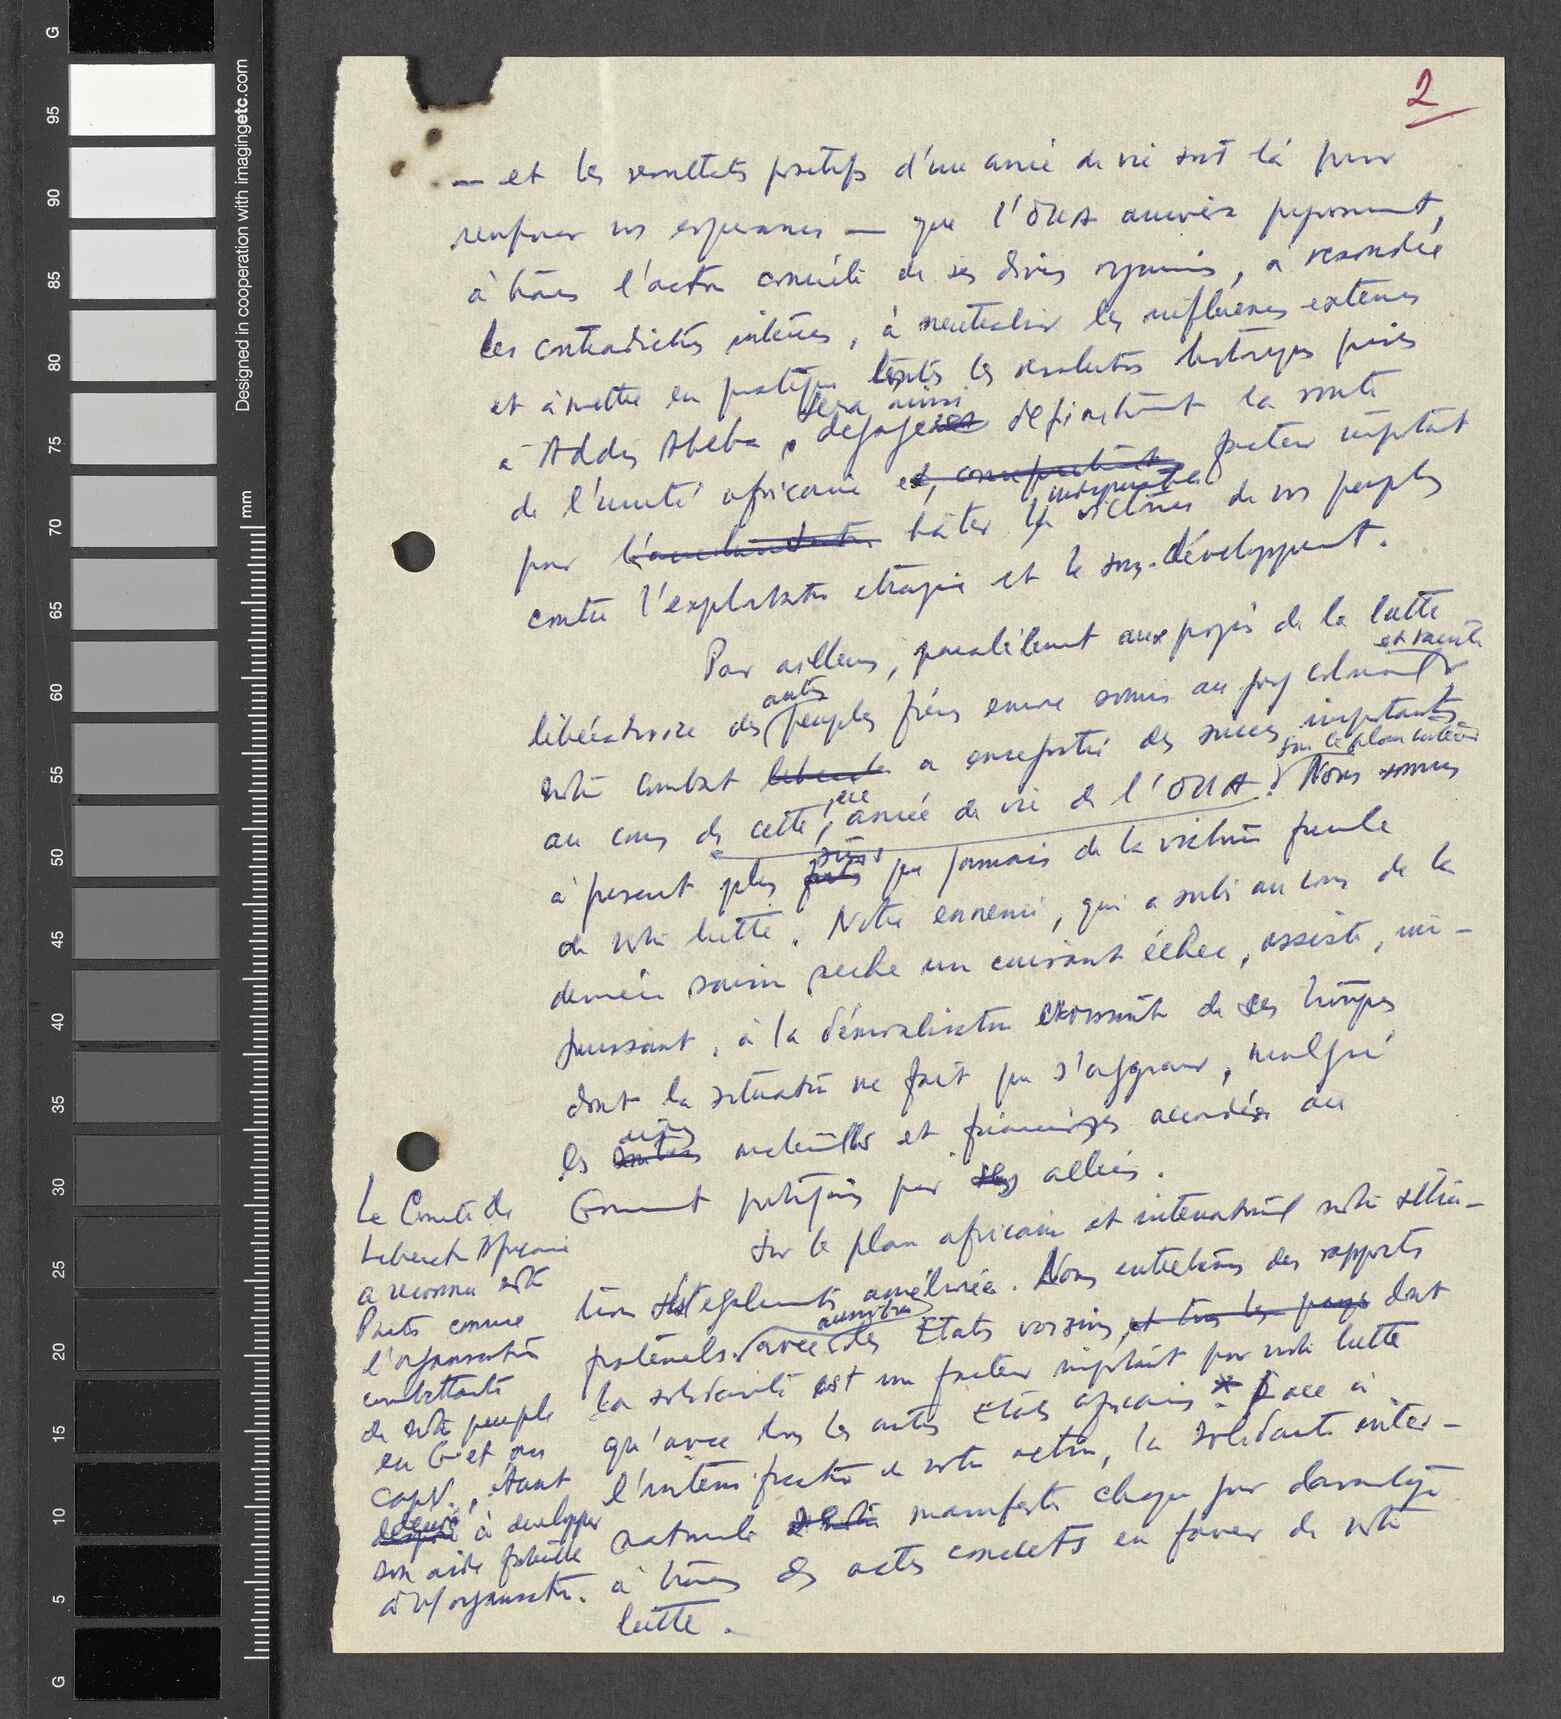 2
— et les resultats positifs d'une année de vie sont là pour
renforcer nos esperances — que l'OUA
à travers l'action concrète de ses divers organismes, à resoudre
les contradictions internes, à neutraliser les influences externes
et à mettre en pratique toutes les resolutions historiques prises
à Addis Abeba,
sera aussi
degagera definitivement la route
de l'unité africaine et, facteur important
pour hâter la victoire de nos peuples
contre l'exploitation etrangère et le sous-développement.
Par ailleurs, parallèlement aux progrès de la lutte
libératrice des
autres
peuples frères encore soumis au joug colonial
et raciste
notre combat a enregistré des succes importants
sur le plan intérieur
au cours de cette 1ère année de vie de l'OUA. Nous sommes
à present plus
sûrs
que jamais de la victoire finale
de notre lutte. Notre ennemi, qui a subi au cours de la
dernière saison seche un cuisant échec, assiste, im-
puissant, à la démoralisation croissante de ses troupes
dont la situation ne fait que s'aggraver, malgré
les
aides
materielles et financières accordées au
Gouvernement portugais par ses alliés.
Sur le plan africain et international notre situa-
tion s'est egalement améliorée. Nous entretenons des rapports
fraternels avec
aujourd'hui
des Etats voisins, et tous les pays dont
la solidarité est un facteur important pour notre lutte
qu'avec tous les autres Etats africains.* Face à
l'intensification de notre action, la solidarité inter-
nationale manifeste chaque jour davantage
à travers des actes concrets en faveur de notre
lutte.
Le Comité de
Liberation Africaine
a reconnu notre
Parti comme
l'organisation
combattante
de notre peuple
en G. et aux
CapV., étant
decidé à developper
son aide fraternelle
à n/ organisation.
Designed in cooperation with imagingetc.com
mm
G
95
90
85
80
75
70
65
60
55
50
45
40
35
30
25
20
15
10
5
G